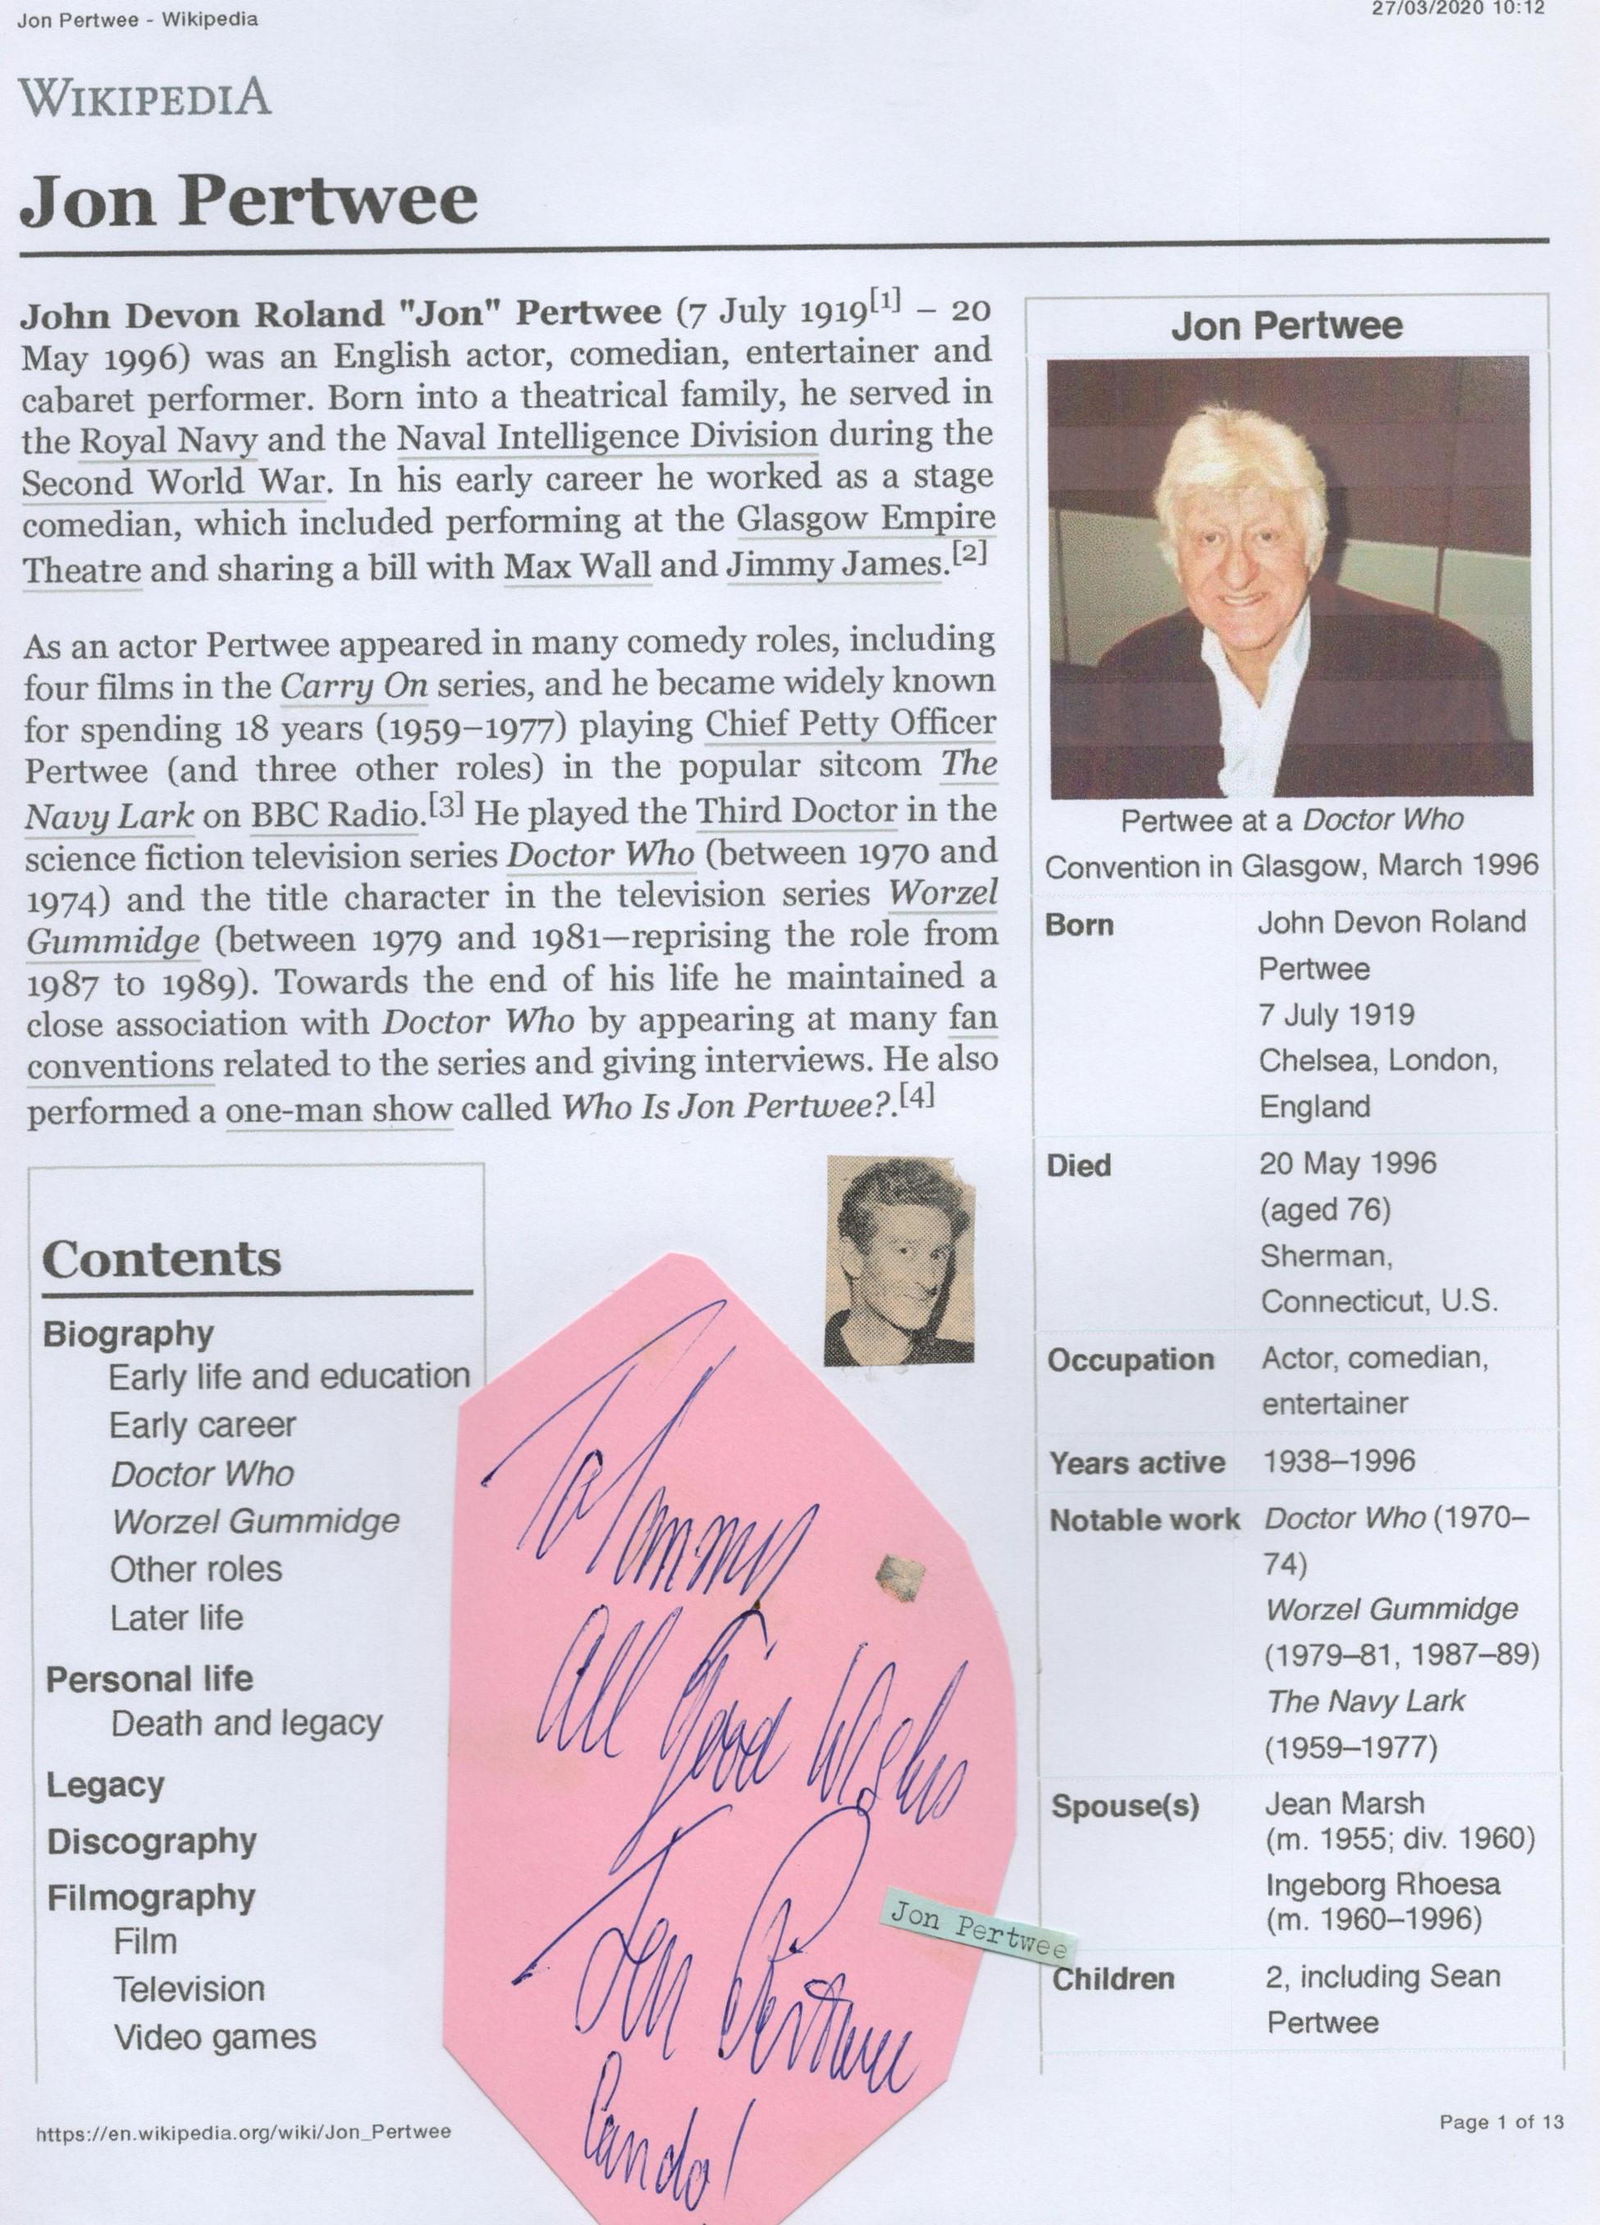 Jon Pertwee - Wikipedia
27/03/2020 10:12
WIKIPEDIA
Jon Pertwee
John Devon Roland "Jon" Pertwee (7 July 1919[1] – 20
May 1996) was an English actor, comedian, entertainer and
cabaret performer. Born into a theatrical family, he served in
the Royal Navy and the Naval Intelligence Division during the
Second World War. In his early career he worked as a stage
comedian, which included performing at the Glasgow Empire
Theatre and sharing a bill with Max Wall and Jimmy James.[2]
As an actor Pertwee appeared in many comedy roles, including
four films in the Carry On series, and he became widely known
for spending 18 years (1959–1977) playing Chief Petty Officer
Pertwee (and three other roles) in the popular sitcom The
Navy Lark on BBC Radio.[3] He played the Third Doctor in the
science fiction television series Doctor Who (between 1970 and
1974) and the title character in the television series Worzel
Gummidge (between 1979 and 1981—reprising the role from
1987 to 1989). Towards the end of his life he maintained a
close association with Doctor Who by appearing at many fan
conventions related to the series and giving interviews. He also
performed a one-man show called Who Is Jon Pertwee?.[4]
Jon Pertwee
Pertwee at a Doctor Who
Convention in Glasgow, March 1996
Born John Devon Roland
Pertwee
7 July 1919
Chelsea, London,
England
Died 20 May 1996
(aged 76)
Sherman,
Connecticut, U.S.
Occupation Actor, comedian,
entertainer
Years active 1938–1996
Notable work Doctor Who (1970–
74)
Worzel Gummidge
(1979–81, 1987–89)
The Navy Lark
(1959–1977)
Spouse(s) Jean Marsh
(m. 1955; div. 1960)
Ingeborg Rhoesa
(m. 1960–1996)
Children 2, including Sean
Pertwee
Contents
Biography
Early life and education
Early career
Doctor Who
Worzel Gummidge
Other roles
Later life
Personal life
Death and legacy
Legacy
Discography
Filmography
Film
Television
Video games
To Tommy
All Good Wishes
Jon Pertwee
Jon Pertwee
https://en.wikipedia.org/wiki/Jon_Pertwee
Page 1 of 13